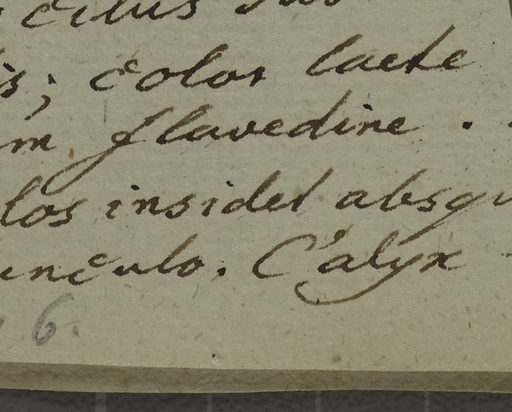 is; color lacte
m flavedine .
los insidet absqu
unculo. Calyx
6.